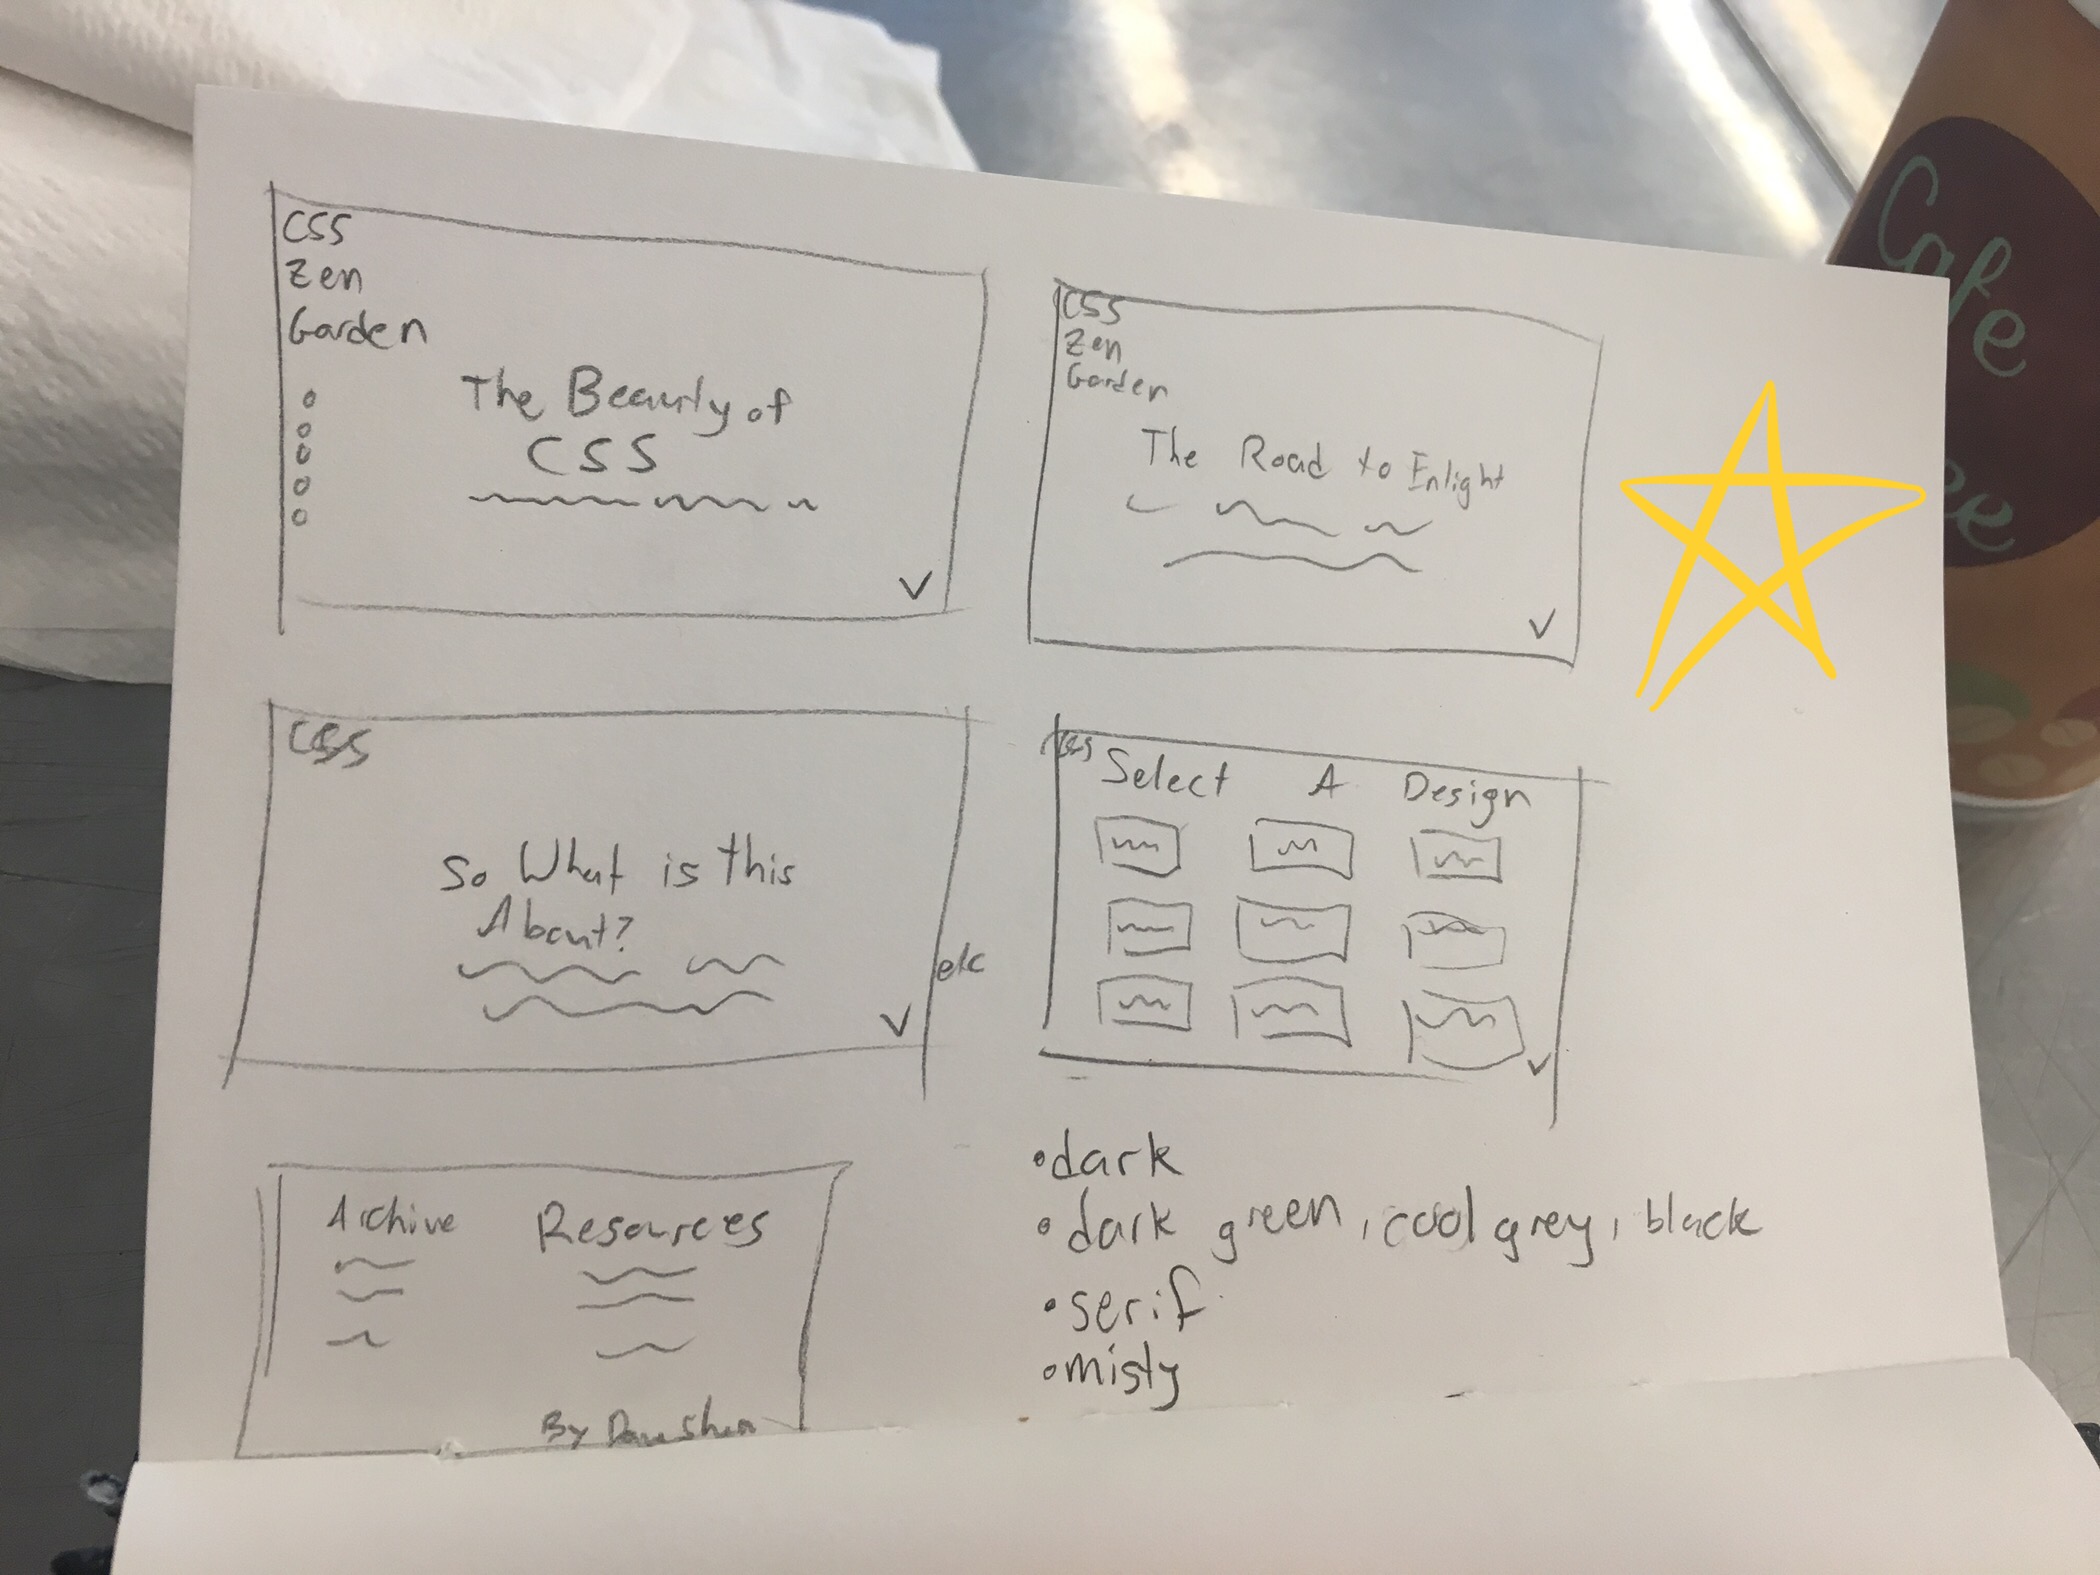 CSS
Zen
Garden
The Beauty of
CSS
CSS
Zen
Garden
The Road to Enlight
CSS
So What is this
About?
etc
CSS
Select A Design
Archive
Resources
By Dave Shea
•dark
•dark green, cool grey, black
•serif
•misty
Cafe